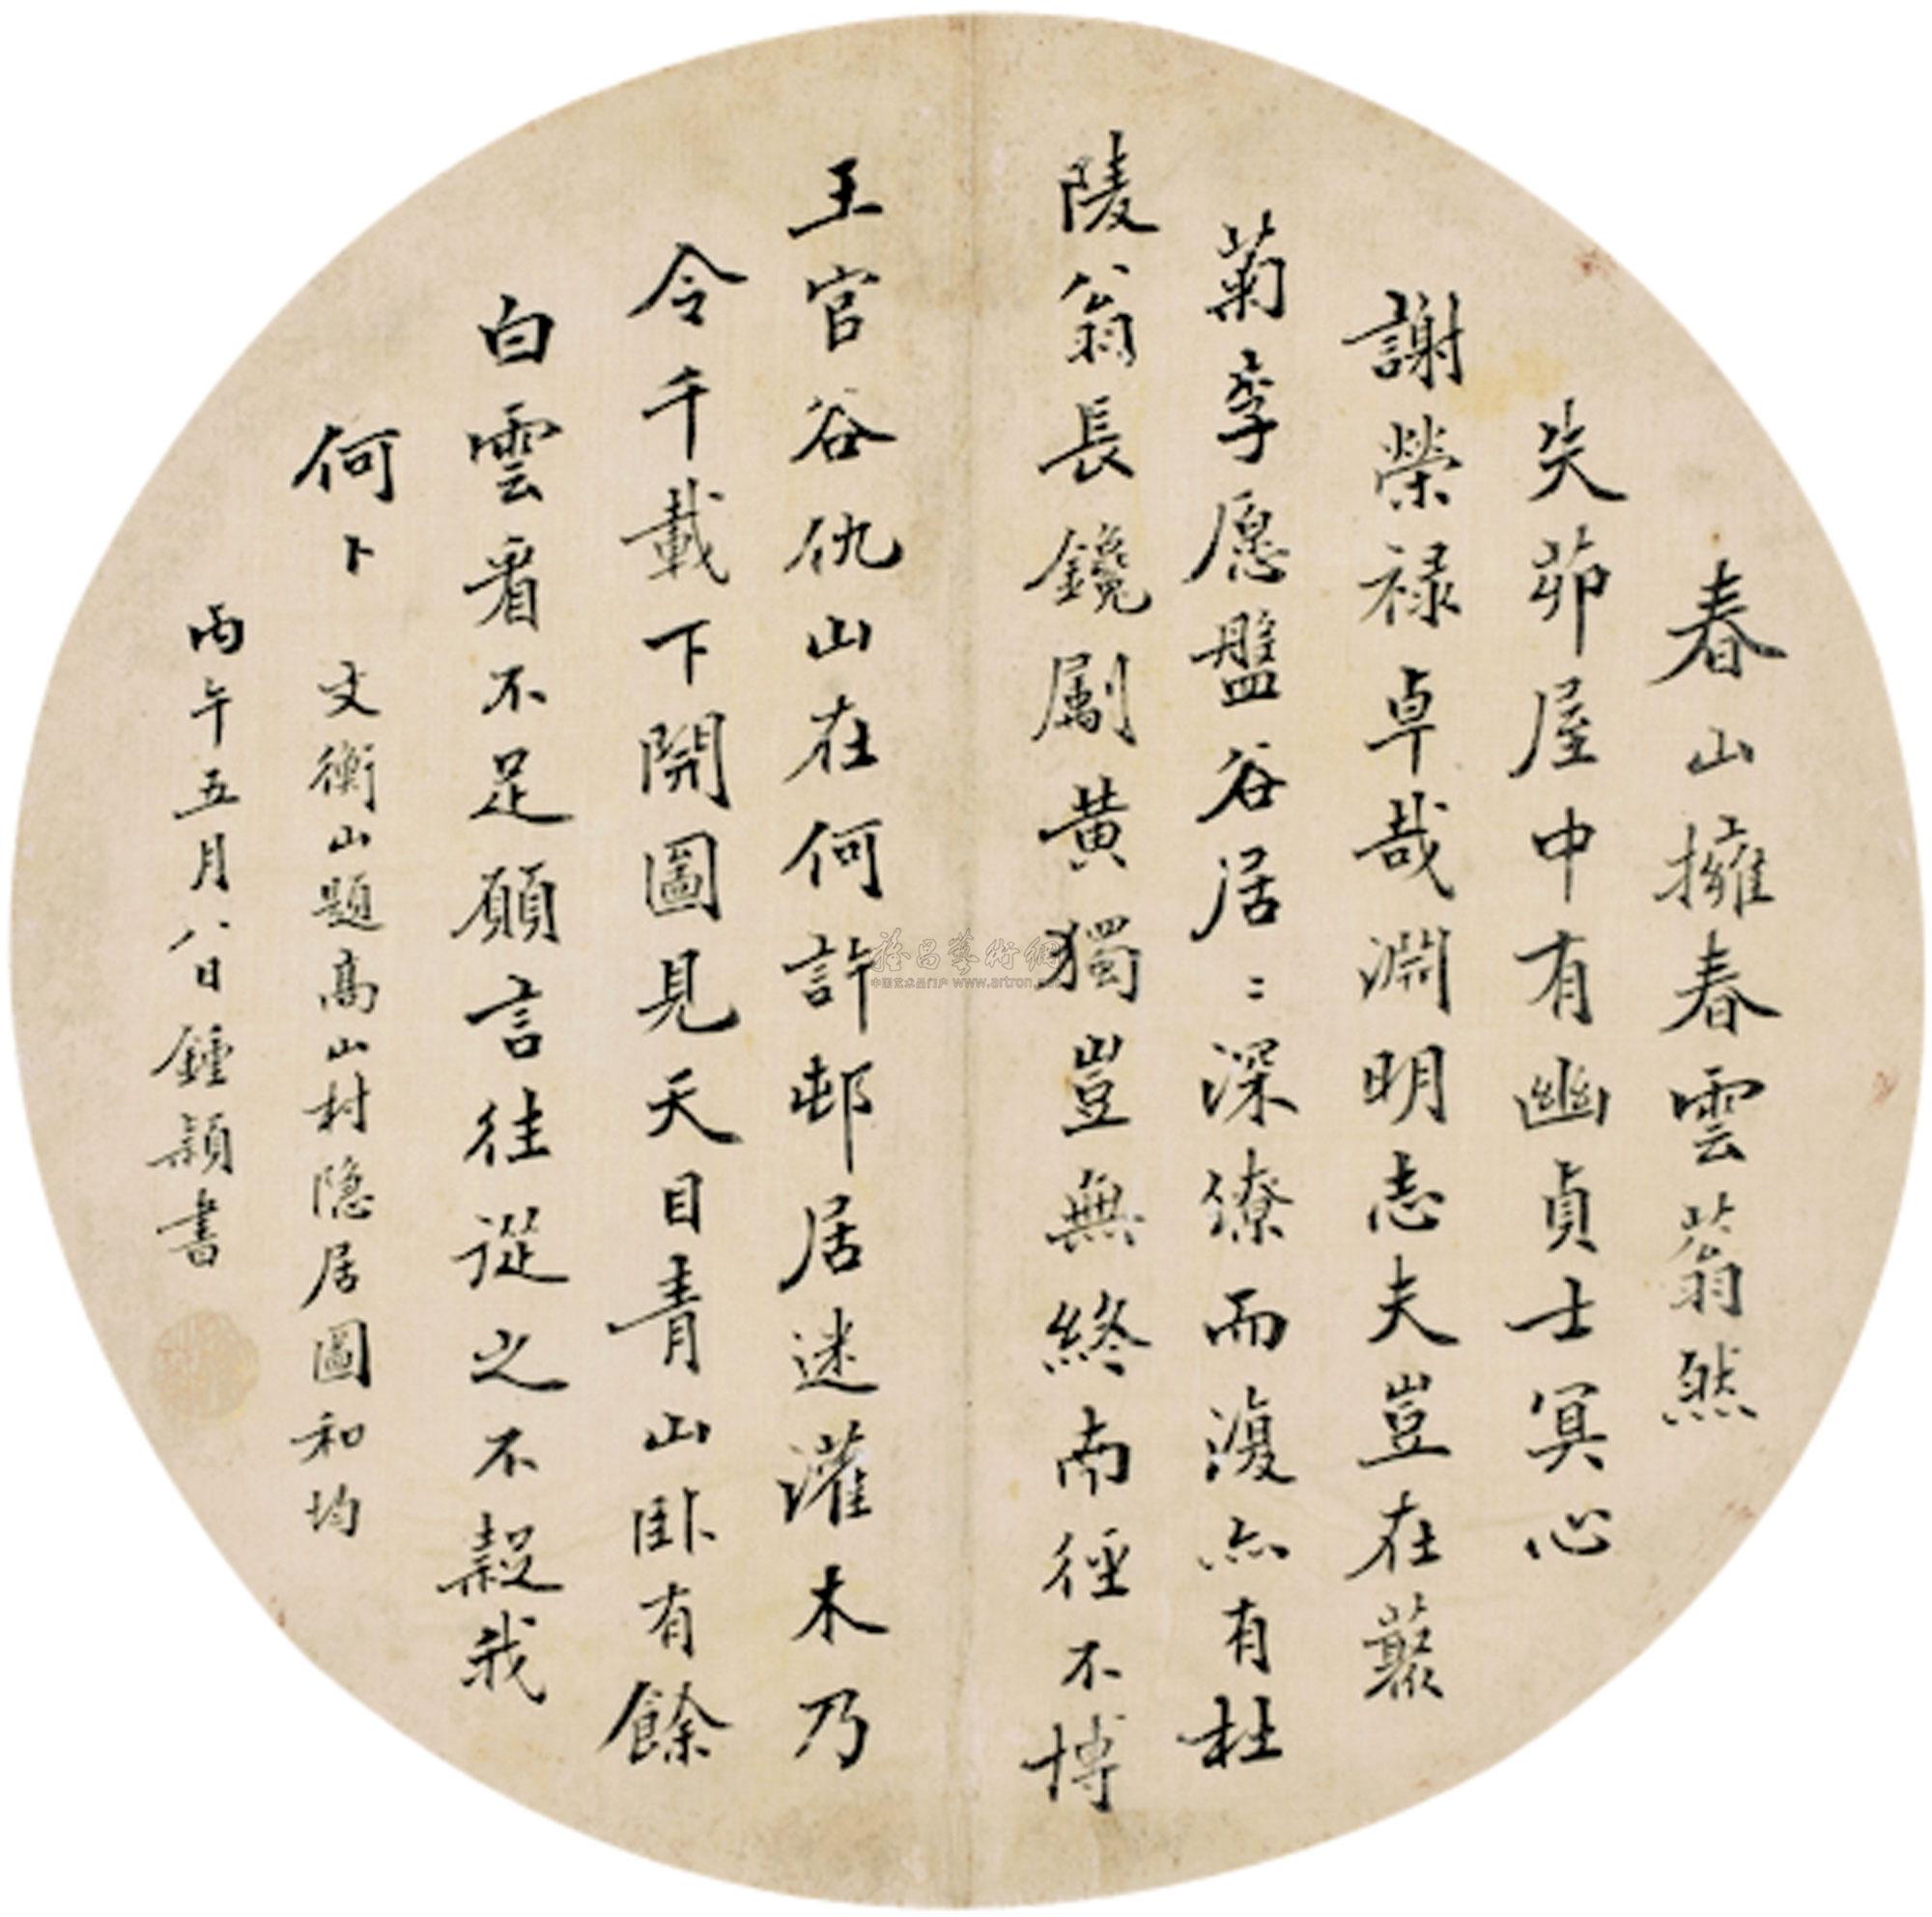 春山擁春雲蓊然
失茆屋中有幽貞士冥心
謝榮祿卓哉淵明志夫豈在藂
菊李愿盤谷居〻深繚而澓亦有杜
陵翁長鑱劚黄獨豈無終南徑不博
王官谷仇山在何許邨居迷灌木乃
令千載下開圖見天目青山卧有餘
白雲看不足願言往從之不穀我
何卜
文衡山題高山村隐居圖和均
丙午五月八日鍾穎書
雅昌藝術網
中国艺术品门户 www.artron.net